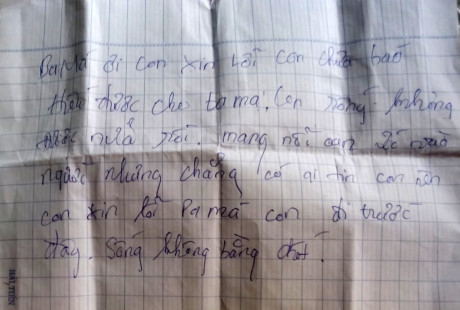 Ba Má ơi con xin lỗi con chưa báo
hiếu được cho ba má. Con sống không
được nữa rồi. mang nỗi oan
người nhưng chẳng có ai tin con nên
con xin lỗi Ba má con đi trước
đây. Sống không bằng chết.